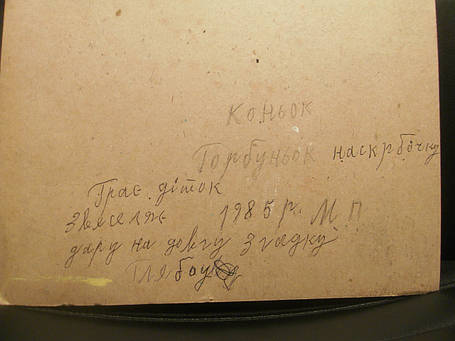 Коньок
Горбуньок на скрбочку
Грає діток
звеселяє 1985 р. М П
дару на довгу згадку